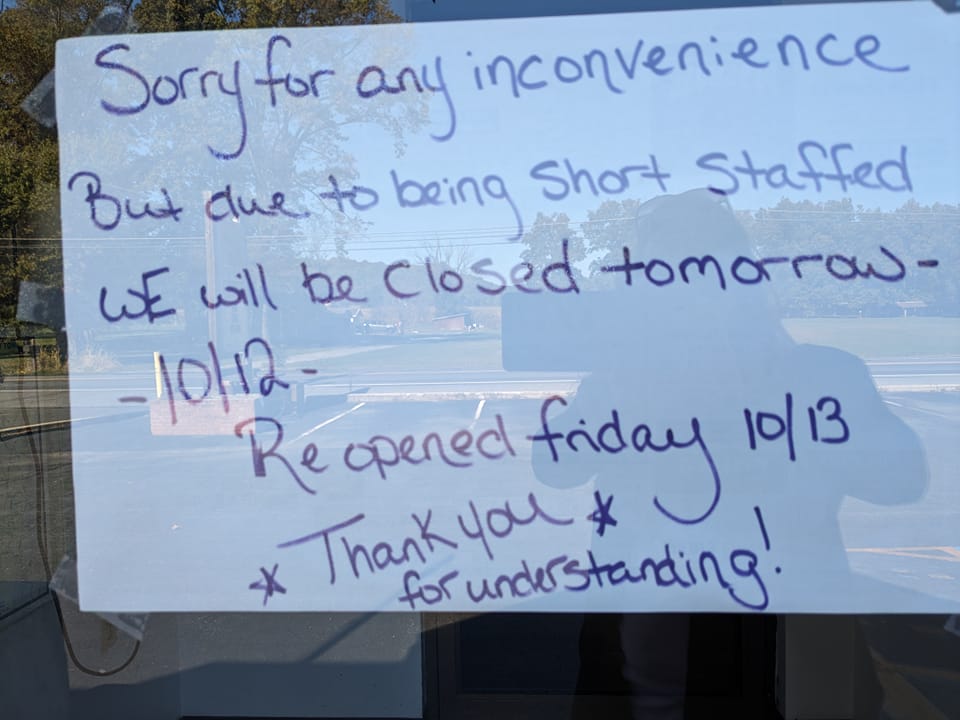 Sorry for any inconvenience
But due to being short staffed
WE will be closed tomorrow -
- 10/12 -
Re opened friday 10/13
* Thank you *
for understanding!